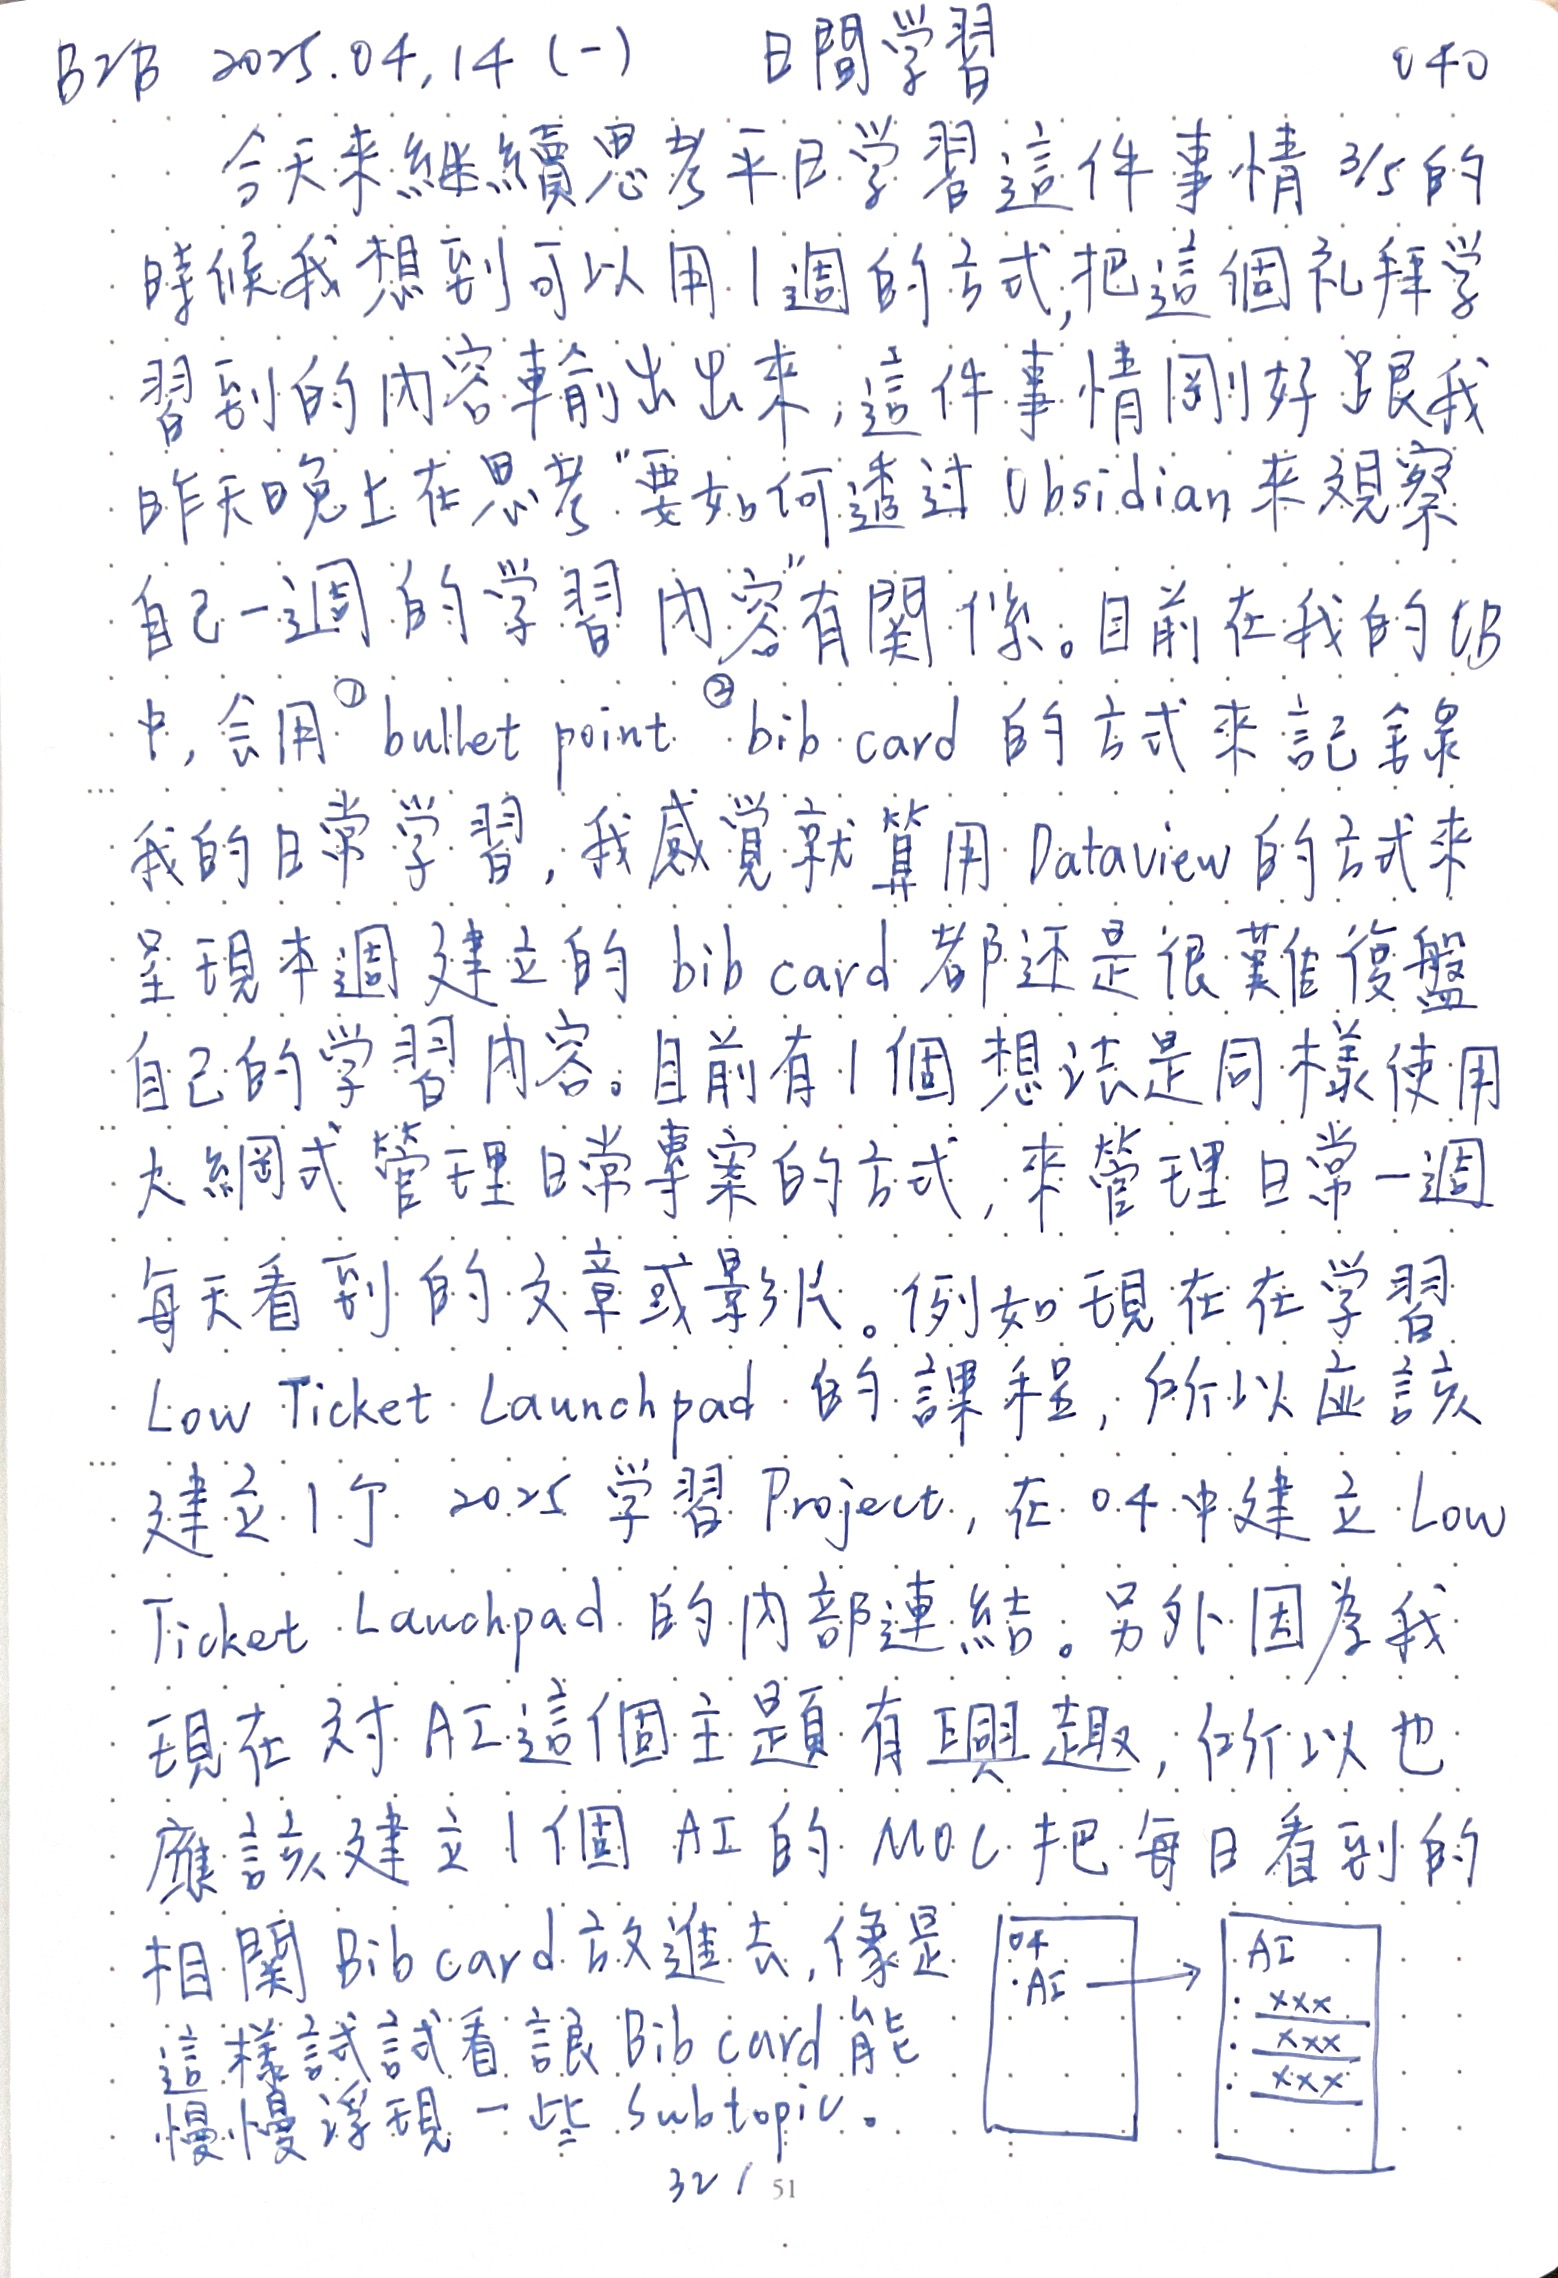 B2B 2025.04.14 (一) 日間学習 040
今天來継續思考平日学習這件事情 3/5的
時候我想到可以用1週的方式,把這個礼拜学
習到的内容輸出出來,這件事情剛好跟我
昨天晚上在思考"要如何透过 Obsidian 來观察
自己一週的学習内容"有関係。目前在我的OB
中,会用①bullet point ②bib card 的方式來記錄
我的日常学習,我感覚就算用 Dataview 的方式來
呈現本週建立的 bib card 都还是很難復盤
自己的学習内容。目前有1個想法是同樣使用
大綱式管理日常專案的方式,來管理日常一週
每天看到的文章或影片。例如現在在学習
Low Ticket Launchpad 的課程,所以应該
建立1个 2025 学習 Project,在 04 中建立 Low
Ticket Lauchpad 的内部連結。另外因為我
現在对 AI 這個主題有興趣,所以也
應該建立1個 AI 的 MOC 把每日看到的
相関 Bib card 放進去,像是
這樣試試看讓 Bib card 能
慢慢浮現一些 Subtopic。
04
·AI →
AI
· xxx
· xxx
· xxx
321 51